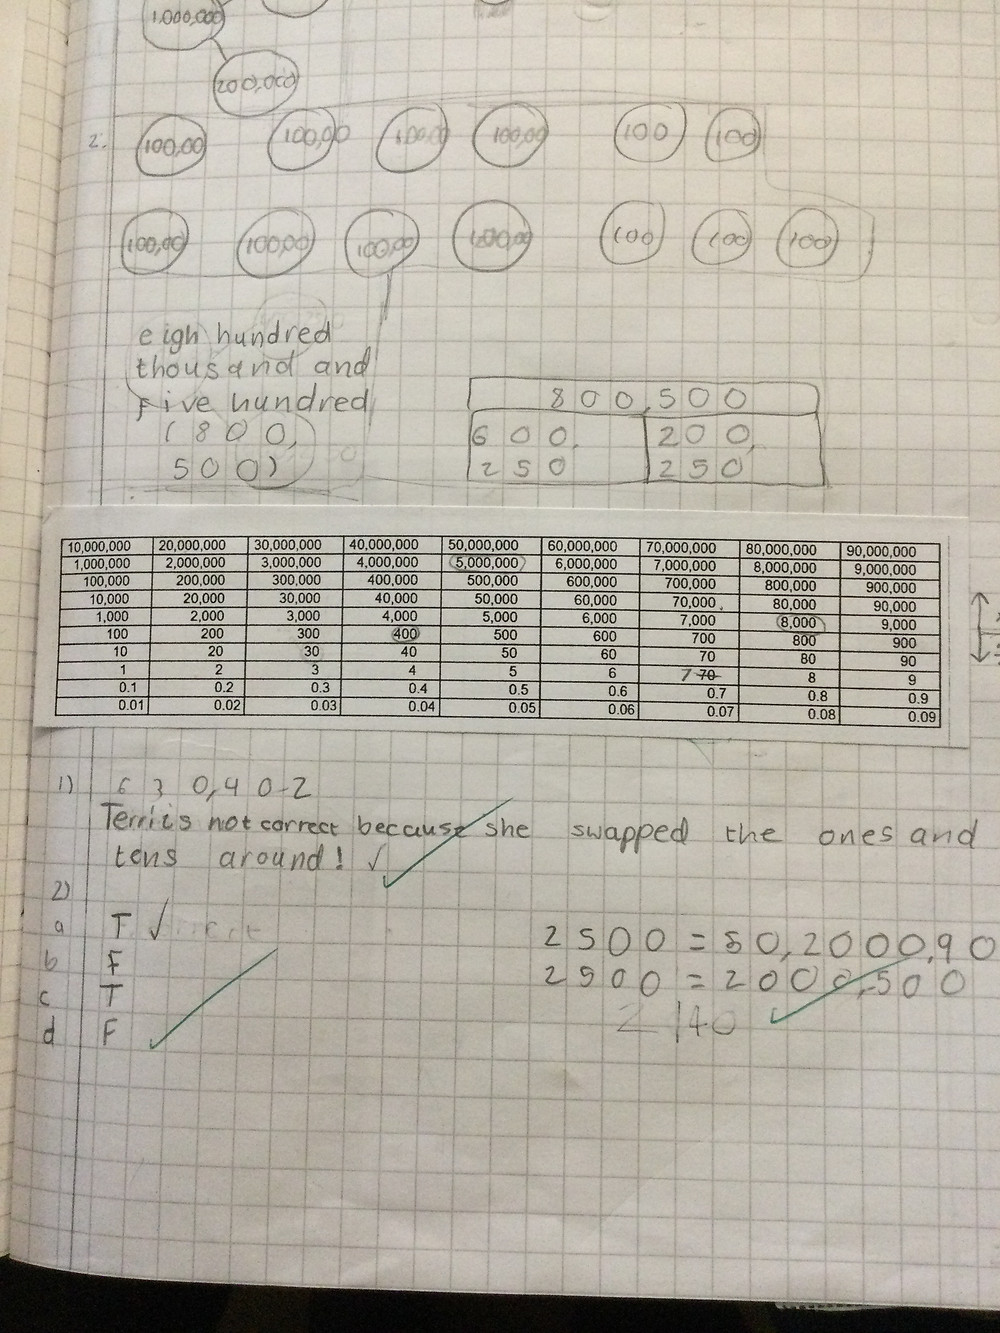 1.000,000
200,000
2.
100,00 100,00 100,00 100,00 100 100
100,00 100,00 100,00 100,00 100 100 100
eigh hundred
thousand and
Five hundred
(800,
500)
800,500
600, 200,
250 250
10,000,000 20,000,000 30,000,000 40,000,000 50,000,000 60,000,000 70,000,000 80,000,000 90,000,000
1,000,000 2,000,000 3,000,000 4,000,000 5,000,000 6,000,000 7,000,000 8,000,000 9,000,000
100,000 200,000 300,000 400,000 500,000 600,000 700,000 800,000 900,000
10,000 20,000 30,000 40,000 50,000 60,000 70,000 80,000 90,000
1,000 2,000 3,000 4,000 5,000 6,000 7,000 8,000 9,000
100 200 300 400 500 600 700 800 900
10 20 30 40 50 60 70 80 90
1 2 3 4 5 6 7 70 8 9
0.1 0.2 0.3 0.4 0.5 0.6 0.7 0.8 0.9
0.01 0.02 0.03 0.04 0.05 0.06 0.07 0.08 0.09
1) 630,402
Terri is not correct because she swapped the ones and
tens around!
2)
a T
b F
c T
d F
2500 = 50,2000,90
2500 = 2000,500
2140